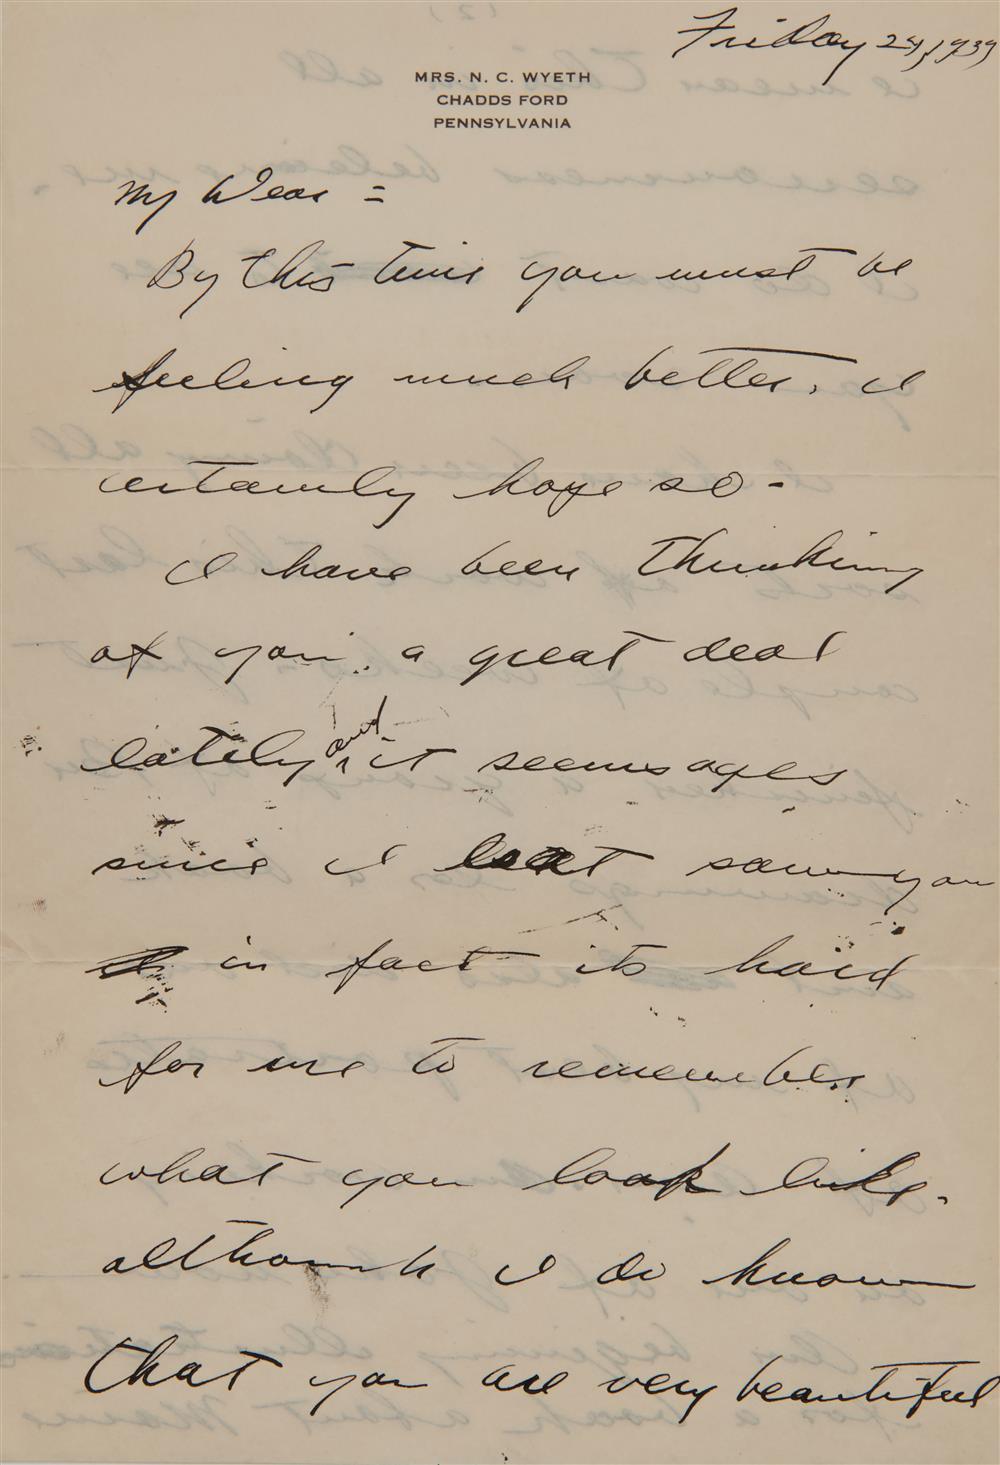 Friday 24, 1939
MRS. N. C. WYETH
CHADDS FORD
PENNSYLVANIA
My Dear =
By this time you must be
feeling much better. I
certainly hope so -
I have been thinking
of you a great deal
lately and it seems ages
since I last saw you
in fact its hard
for me to remember
what you look like.
although I do know
that you are very beautiful